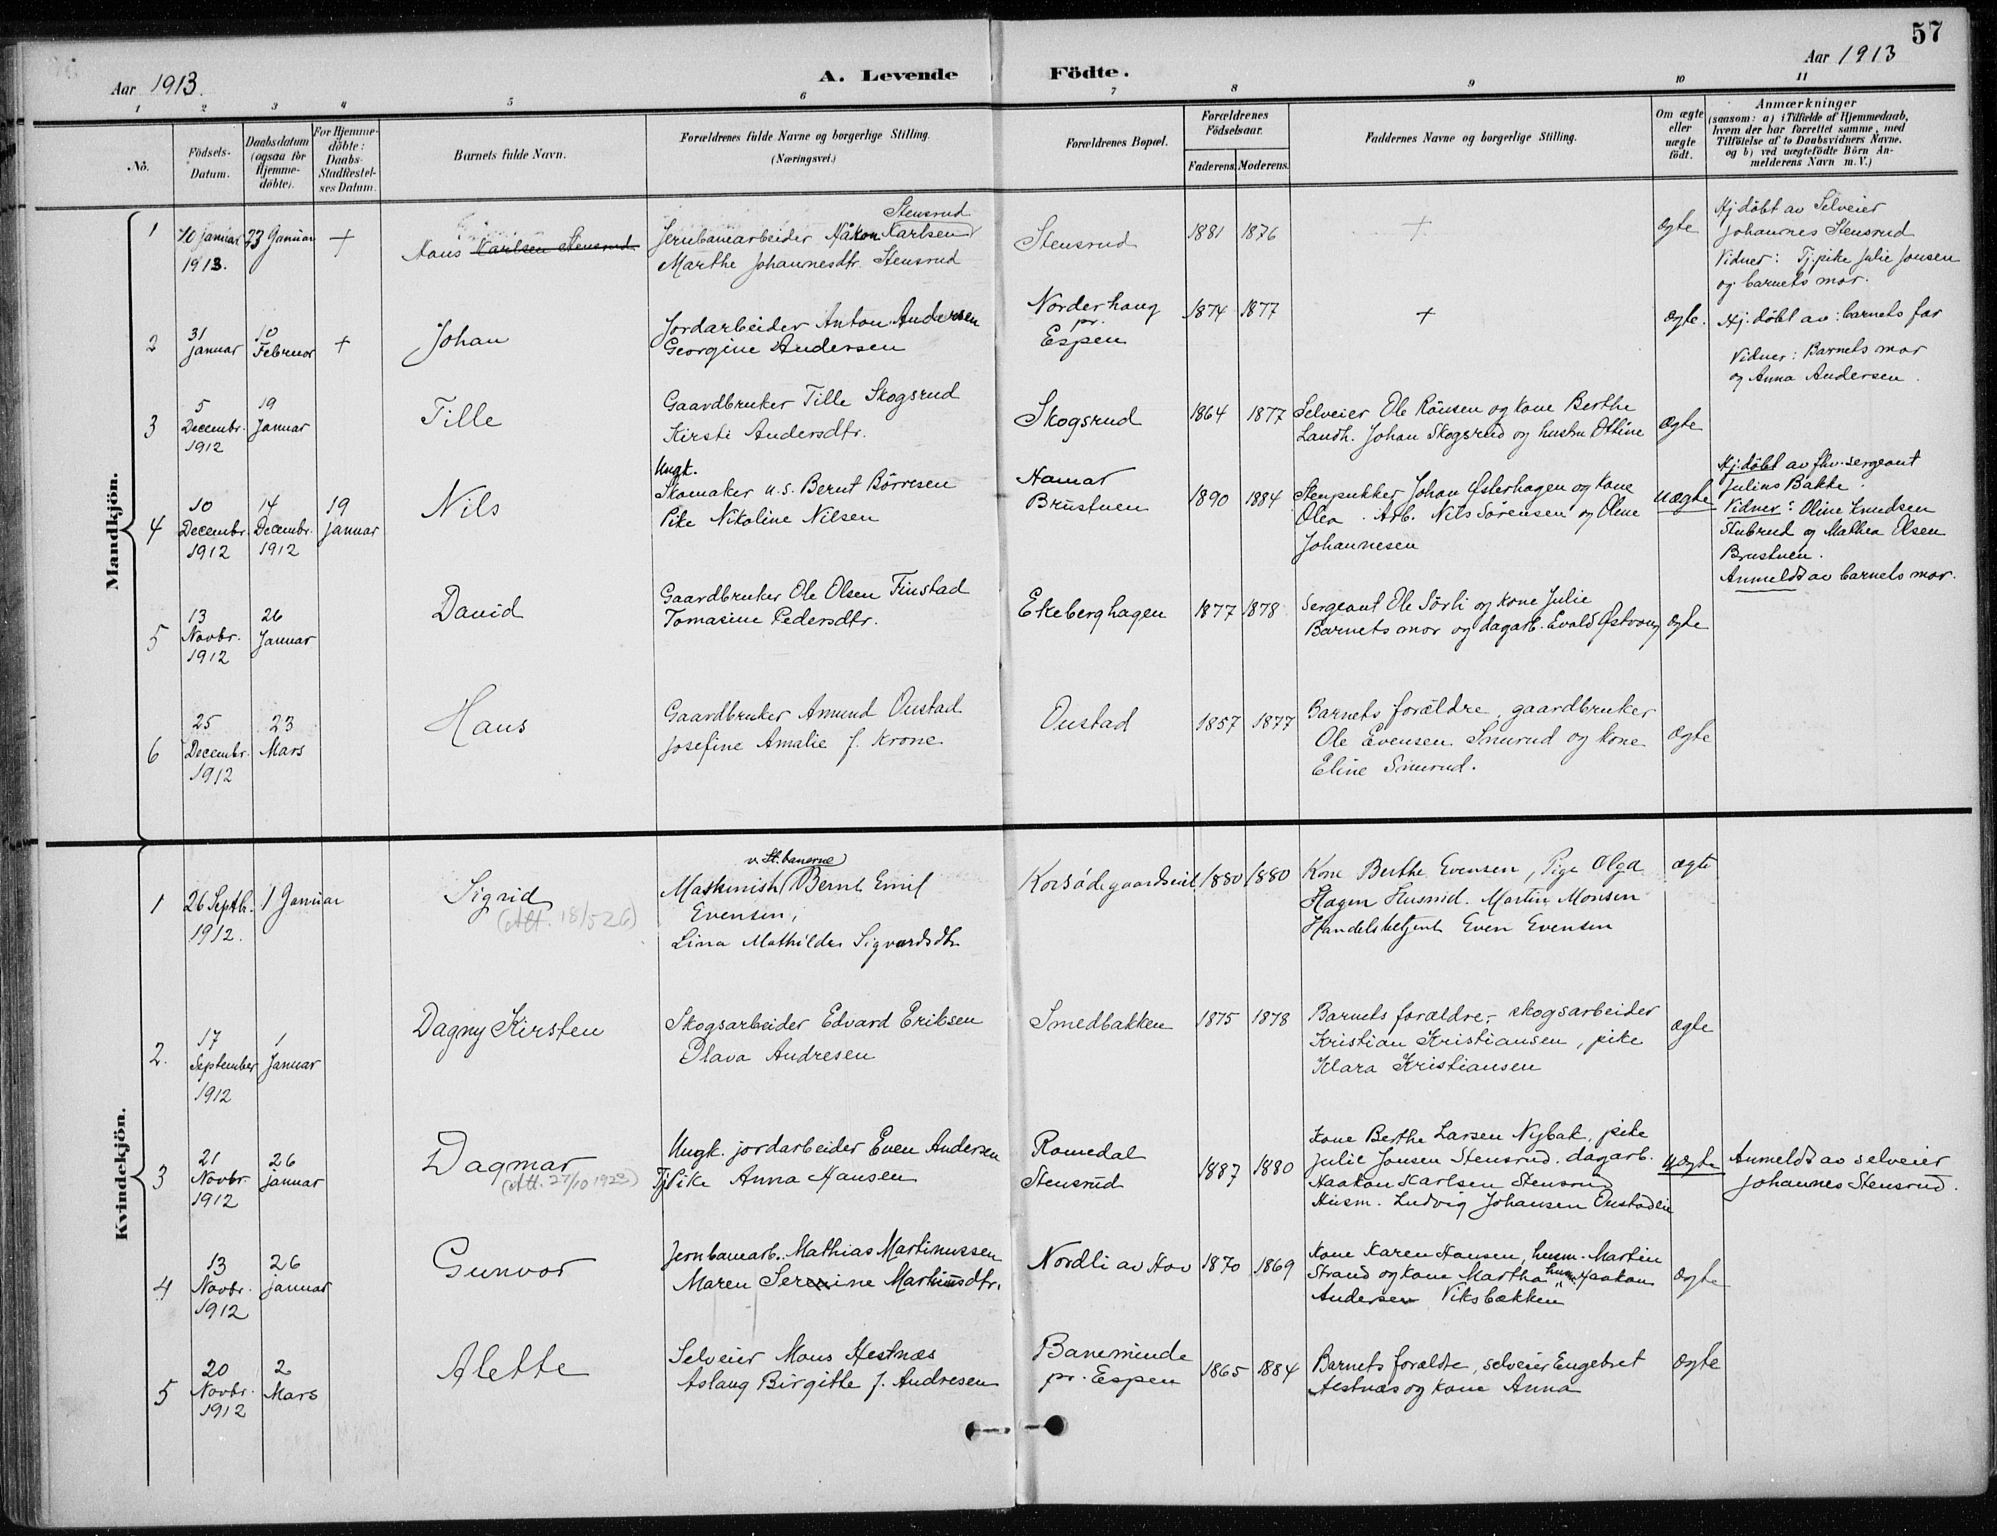 57
Aar 1913.
A. Levende Födte.
Aar 1913
1 2 3 4 5 6 7 8 9 10 11
No.
Födsels-Datum.
Daabsdatum (ogsaa for Hjemme-döbte).
For Hjemme-döbte: Daabs-Stadfæstel-ses Datum.
Barnets fulde Navn.
Forældrenes fulde Navne og borgerlige Stilling.
(Næringsvei.)
Forældrenes Bopæl.
Forældrenes Födselsaar.
Faderens. Moderens.
Faddernes Navne og borgerlige Stilling.
Om ægte eller uægte födt.
Anmærkninger
(saasom: a) i Tilfælde af Hjemmedaab,
hvem der har forrettet samme, med
Tilföielse af to Daabsvidners Navne.
og b) ved uægtefödte Börn An-
melderens Navn m. V.)
Mandkjön.
1
10 januar 1913.
23 Januar
+
Hans Karlsen Stensrud
Stensrud
Jernbanearbeider Håkon Karlsen
Marthe Johannesdtr. Stensrud
Stensrud
1881 1876
+
Ægte
Hj.döbt av Selveier
Johannes Stensrud
Vidner: Tj.pike Julie Jonsen
og barnets mor.
2
31 januar
10 Februar
+
Johan
Jordarbeider Anton Andersen
Georgine Andersen
Norderhaug
pr.
Espen
1874 1877
+
Ægte.
Hj.döbt av: barnets far
Vidner: Barnets mor
og Anna Andersen.
3
5 Decembr. 1912
19 Januar
Tille
Gaardbruker Tille Skogsrud
Kirsti Andersdtr.
Skogsrud
1864 1877
Selveier Ole Rönsen og kone Berthe
Landh. Johan Skogsrud og hustru Ottine
Ægte
4
10 Decembr. 1912
14 Decembr. 1912
19 Januar
Nils
Ungk.
Skomaker u.s. Bernt Börresen
Pike Nikoline Nilsen
Hamar
Brustuen
1890 1884
Stenpukker Johan Østerhagen og kone
Olea. Arb. Nils Sörensen og Oline
Johannesen
Uægte
Hj.döbt av fhv. sergeant
Julius Bakke.
Vidner: Oline Knudsen
Stubrud og Mathea Olsen
Brustuen.
Anmeldt av barnets mor.
5
13 Novbr. 1912
26 Januar
David
Gaardbruker Ole Olsen Finstad
Tomasine Pedersdtr.
Ekeberghagen
1877 1878
Sergeant Ole Sörli og kone Julie
Barnets mor og dagarb. Evald Østvang
Ægte
6
25 Decembr. 1912
23 Mars
Hans
Gaardbruker Amund Oustad
Josefine Amalie f. Krone
Oustad
1857 1877
Barnets forældre, gaardbruker
Ole Evensen Smurud og kone
Eline Smurud.
Ægte
Kvindekjön.
1
26 Septb. 1912.
1 Januar
Sigrid
(Att. 18/5 26)
v. St.banerne
Maskinist Bernt Emil
Evensen,
Lina Mathilde Sigvardsdtr.
Korsødegaardseie
1880 1880
Kone Berthe Evensen, Pige Olga
Hagen Husmd. Martin Monsen
Handelsbetjent Even Evensen
ægte
2.
17 September 1912
1 Januar
Dagny Kirsten
Skogsarbeider Edvard Eriksen
Olava Andresen
Smedbakken
1875 1878
Barnets forældre, skogsarbeider
Kristian Kristiansen, pike
Klara Kristiansen
Ægte
3
21 Novbr. 1912
26 Januar
Dagmar
(Att. 27/10 1923)
Ungk. jordarbeider Even Andersen
Tj Pike Anna Hansen
Romedal
Stensrud
1887 1880
Kone Berthe Larsen Nybak, pike
Julie Jonsen Stensrud, dagarb.
Haakon Karlsen Stensrud
Husm. Ludvig Johansen Oustadeie
Uægte
Anmeldt av selveier
Johannes Stensrud.
4
13 Novbr. 1912
26 Januar
Gunvor
Jernbanearb. Mathias Martinussen
Maren Serenine Martinusdtr.
Nordli av Hov
1870 1869
Kone Karen Hansen, husm. Martin
Strand og kone Martha husm. Haakon
Andersen Viksbækken
Ægte
5
20 Novbr. 1912
2 Mars
Alette
Selveier Mons Hestnæs
Aslaug Birgitte f. Andresen
Baneminde
pr. Espen
1865 1884
Barnets forældre, selveier Engebret
Hestnæs og kone Anna
Ægte